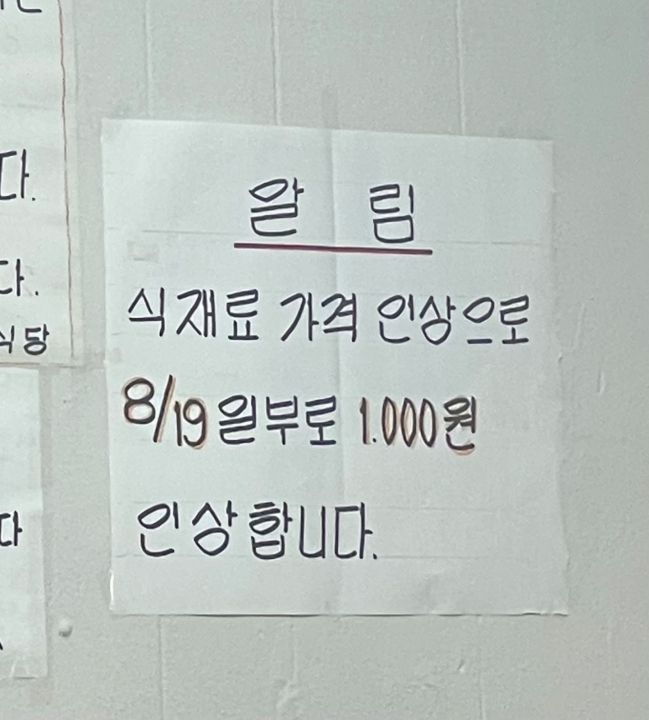 다.
다.
식당
다
알 림
식재료 가격 인상으로
8/19일부로 1.000원
인상합니다.